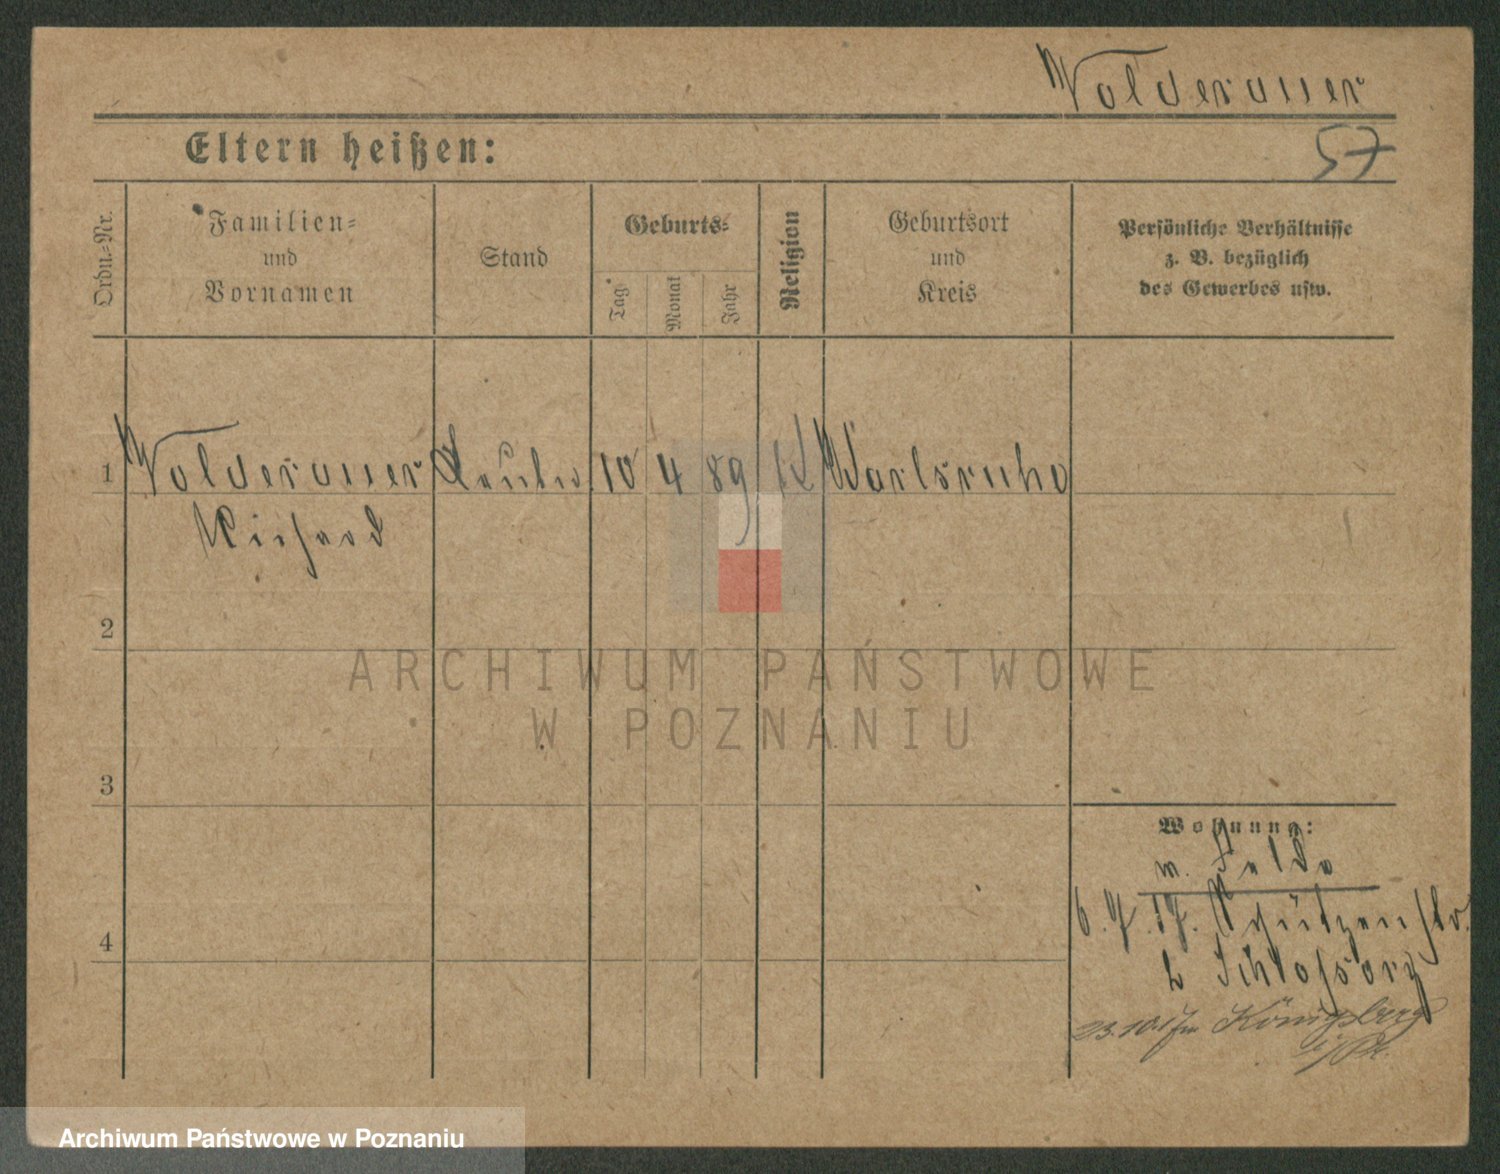 Wolderauer
57
Eltern heißen:
Ordn.=Nr.
Familien=
und
Vornamen
Stand
Geburts=
Tag
Monat
Jahr
Religion
Geburtsort
und
Kreis
Persönliche Verhältnisse
z. B. bezüglich
des Gewerbes usw.
1 Wolderauer 10 4 89 K Karlsruhe
Richard
2
3
4
Wohnung:
m. Felde
6. 9. 17. Schützenstr.
b Schloßarz
23.10.17 Königsberg
i/Pr.
ARCHIWUM PAŃSTWOWE
W POZNANIU
Archiwum Państwowe w Poznaniu